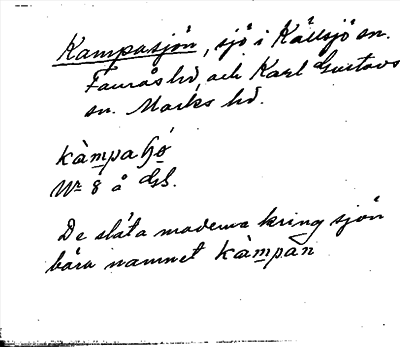 Kampasjön, sjö i Källsjö sn.
Faurås hd och Karl Gustavs
sn. Marks hd.
kàmpa
Nr 8 å GS.
De slåta maderna kring sjön
bära namnet kàmpan